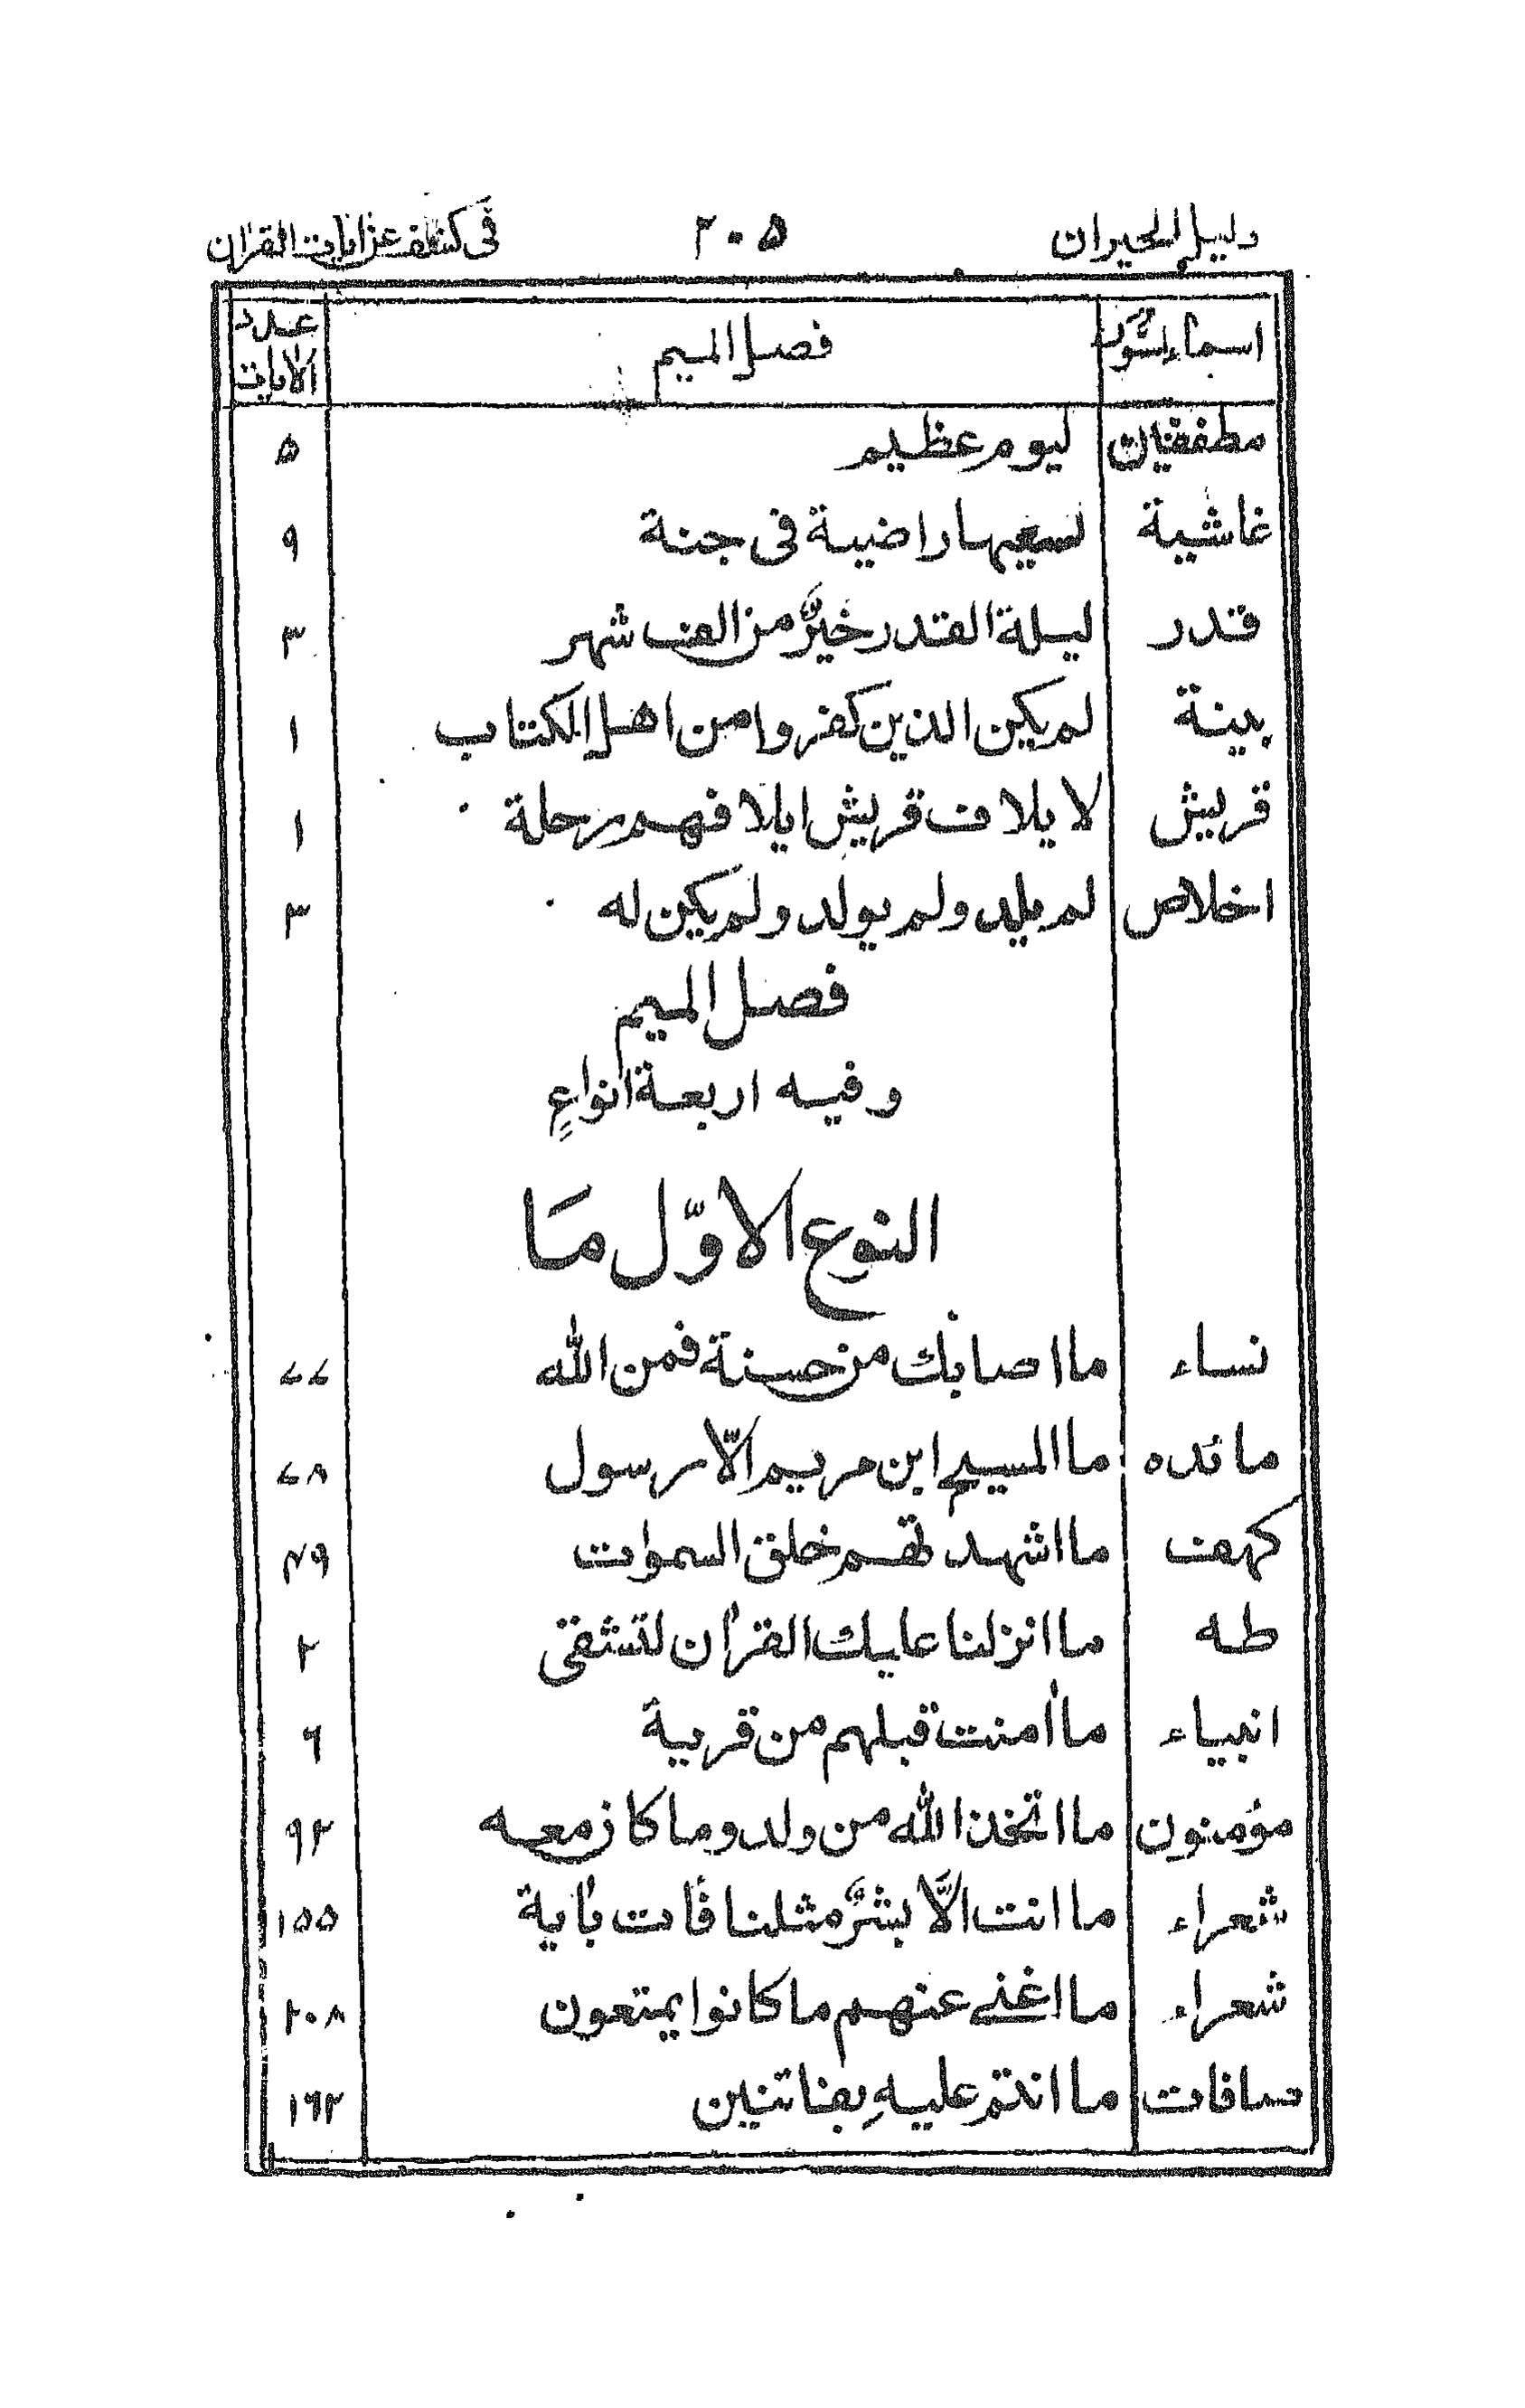 دليل الحيران ٢٠٥ في كشف عن ايات القران
اسماء السور فصل الميم عدد الاٰيات
مطففين ليوم عظيم ٥
غاشية لسعيها راضية فى جنة ٩
قدر ليلة القدر خيرٌ من الف شهر ٣
بينة لم يكن الذين كفروا من اهل الكتاب ١
قريش لايلاف قريش ايلافهم رحلة ١
اخلاص لم يلد ولم يولد ولم يكن له ٣
فصل الميم
وفيه اربعة انواعٍ
النوع الاوّل مَا
نساء ما اصابك من حسنة فمن الله ٧٧
مائده ما المسيح ابن مريم الّا رسول ٧٨
كهف ما اشهدتهم خلق السموات ٤٩
طه ما انزلنا عليك القراٰن لتشقى ٢
انبياء ما اٰمنت قبلهم من قرية ٦
مؤمنون ما اتخذ الله من ولد وما كان معه ٩٢
شعراء ما انت الّا بشرٌ مثلنا فأت باٰية ١٥٥
شعراء ما اغنى عنهم ما كانوا يمتعون ٢٠٨
صافات ما انتم عليهِ بفاتنين ١٦٢